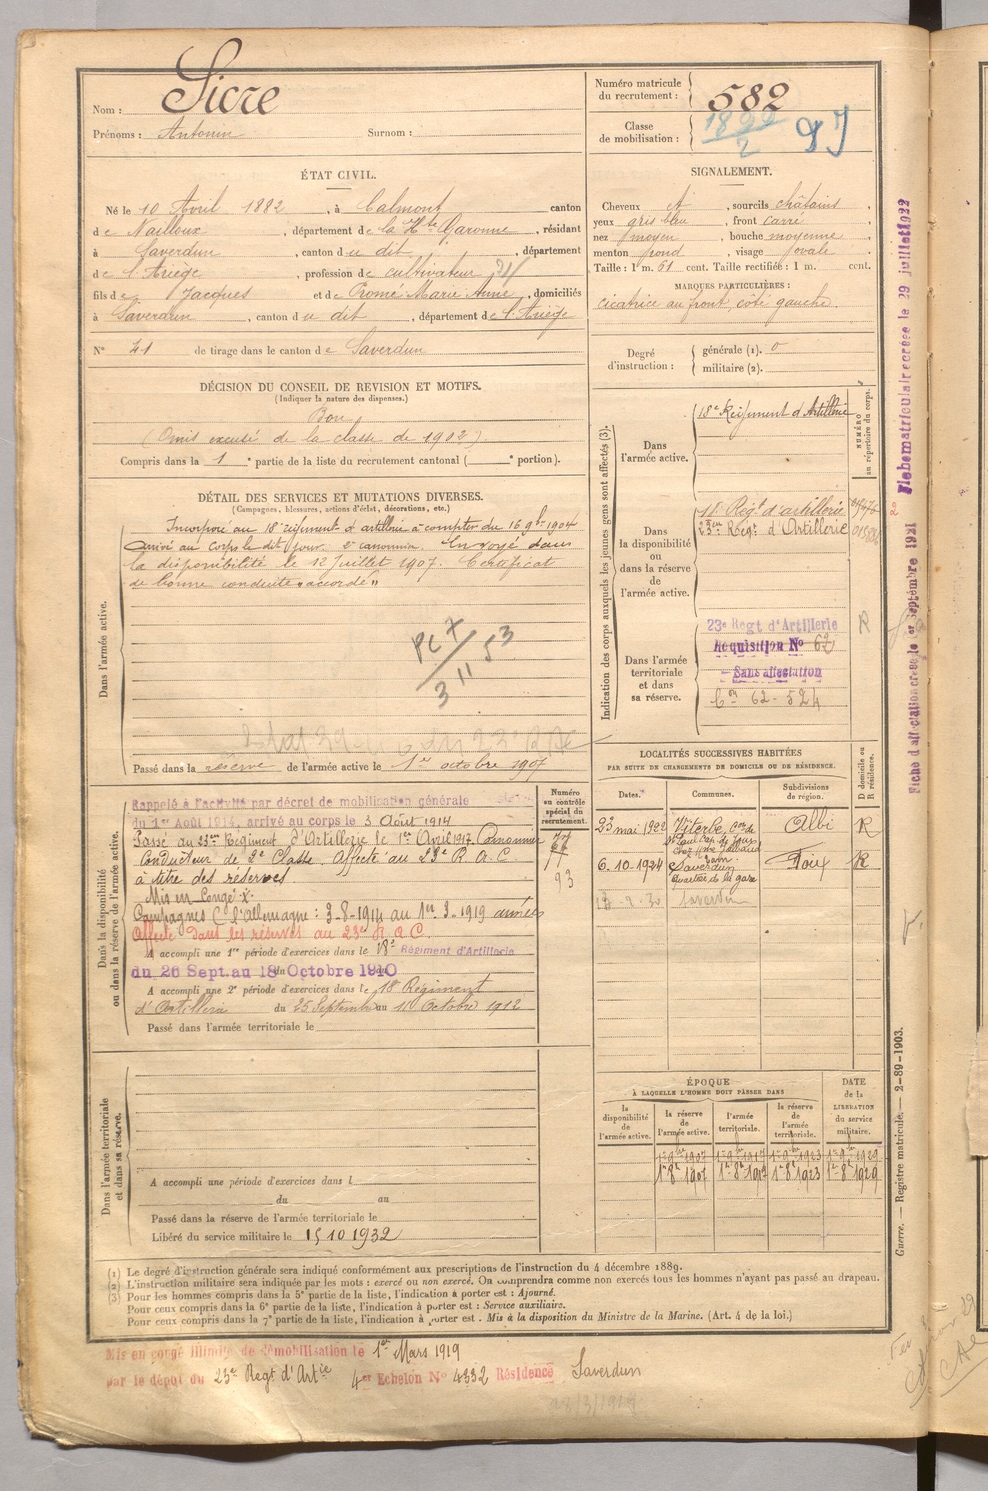 Nom : Sicre
Prénoms : Antonin Surnom :
Numéro matricule du recrutement : 582
Classe de mobilisation : 1899/2 97
ÉTAT CIVIL.
Né le 10 Avril 1882, à Calmont canton
de Nailloux, département de la Hte Garonne, résidant
à Saverdun, canton du dit, département
de l'Ariège, profession de cultivateur
fils de Jacques et de Promé Marie Anne, domiciliés
à Saverdun, canton du dit, département de l'Ariège
N° 41 de tirage dans le canton de Saverdun
SIGNALEMENT.
Cheveux et, sourcils châtains,
yeux gris bleu, front carré
nez moyen, bouche moyenne
menton rond, visage ovale
Taille : 1 m. 61 cent. Taille rectifiée : 1 m. cent.
MARQUES PARTICULIÈRES :
cicatrice au front, côté gauche.
Degré d'instruction : générale (1). 0
militaire (2).
DÉCISION DU CONSEIL DE REVISION ET MOTIFS.
(Indiquer la nature des dispenses.)
Bon
(Omis excusé de la classe de 1902)
Compris dans la 1e partie de la liste du recrutement cantonal ( e portion).
DÉTAIL DES SERVICES ET MUTATIONS DIVERSES.
(Campagnes, blessures, actions d'éclat, décorations, etc.)
Dans l'armée active.
Incorporé au 18e régiment d'artillerie à compter du 16 9bre 1904
Arrivé au corps le dit jour. 2e canonnier. Envoyé dans
la disponibilité le 12 Juillet 1907. Certificat
de bonne conduite "accordé"
Passé dans la réserve de l'armée active le 1er octobre 1907
Indication des corps auxquels les jeunes gens sont affectés (3).
NUMÉRO au répertoire du corps.
Dans l'armée active.
18e Régiment d'Artillerie
Dans la disponibilité ou dans la réserve de l'armée active.
18e Régt d'artillerie
23ème Régt d'Artillerie
Dans l'armée territoriale et dans sa réserve.
23e Régt d'Artillerie
Acquisition N° 62
Sans affectation
Con 62-524
R
Dans la disponibilité ou dans la réserve de l'armée active.
Numéro au contrôle spécial du recrutement.
93
Rappelé à l'activité par décret de mobilisation générale
du 1er Août 1914, arrivé au corps le 3 Août 1914
Passé au 23ème Régiment d'Artillerie le 1er Avril 1917. Canonnier
Conducteur de 2e Classe. Affecté au 23e R.A.C.
à titre des réserves
Mis en Congé X.
Campagnes C l'allemagne : 3-8-1914 au 1er 3-1919 années
Affecté dans les réserves au 23e R.A.C.
A accompli une 1re période d'exercices dans le 18e Régiment d'Artillerie
du 26 Sept. au 18 Octobre 1910
A accompli une 2e période d'exercices dans le 18e Régiment
d'Artillerie du 25 Septembre au 11 Octobre 1912
Passé dans l'armée territoriale le
LOCALITÉS SUCCESSIVES HABITÉES
PAR SUITE DE CHANGEMENTS DE DOMICILE OU DE RÉSIDENCE.
Dates. Communes. Subdivisions de région. D domicile ou R résidence.
23 mai 1922 Viterbe, con de
St Paul Cap de Joux
Tarn. Albi R
6.10.1924 Saverdun
quartier de la gare Foix R
Saverdun
ÉPOQUE
À LAQUELLE L'HOMME DOIT PASSER DANS
la disponibilité de l'armée active. la réserve de l'armée active. l'armée territoriale. la réserve de l'armée territoriale.
DATE de la LIBÉRATION du service militaire.
1er 9bre 1907 1er 9bre 1917 1er 9bre 1923 1er 9bre 1929
1er 8bre 1907 1er 8bre 1917 1er 8bre 1923 1er 8bre 1929
Dans l'armée territoriale et dans sa réserve.
A accompli une période d'exercices dans l
du au
Passé dans la réserve de l'armée territoriale le
Libéré du service militaire le 15 10 1932
(1) Le degré d'instruction générale sera indiqué conformément aux prescriptions de l'instruction du 4 décembre 1889.
(2) L'instruction militaire sera indiquée par les mots : exercé ou non exercé. On comprendra comme non exercés tous les hommes n'ayant pas passé au drapeau.
(3) Pour les hommes compris dans la 5e partie de la liste, l'indication à porter est : Ajourné.
Pour ceux compris dans la 6e partie de la liste, l'indication à porter est : Service auxiliaire.
Pour ceux compris dans la 7e partie de la liste, l'indication à porter est : Mis à la disposition du Ministre de la Marine. (Art. 4 de la loi.)
Mis en congé illimité de démobilisation le 1er Mars 1919
par le dépôt du 23e Régt d'Artie 4er Echelon N° 4332 Résidence Saverdun
Fiche matriculaire créée le 29 juillet 1922
Fiche d'affectation créée le 1er Septembre 1921
Guerre. — Registre matricule. — 2-89-1903.